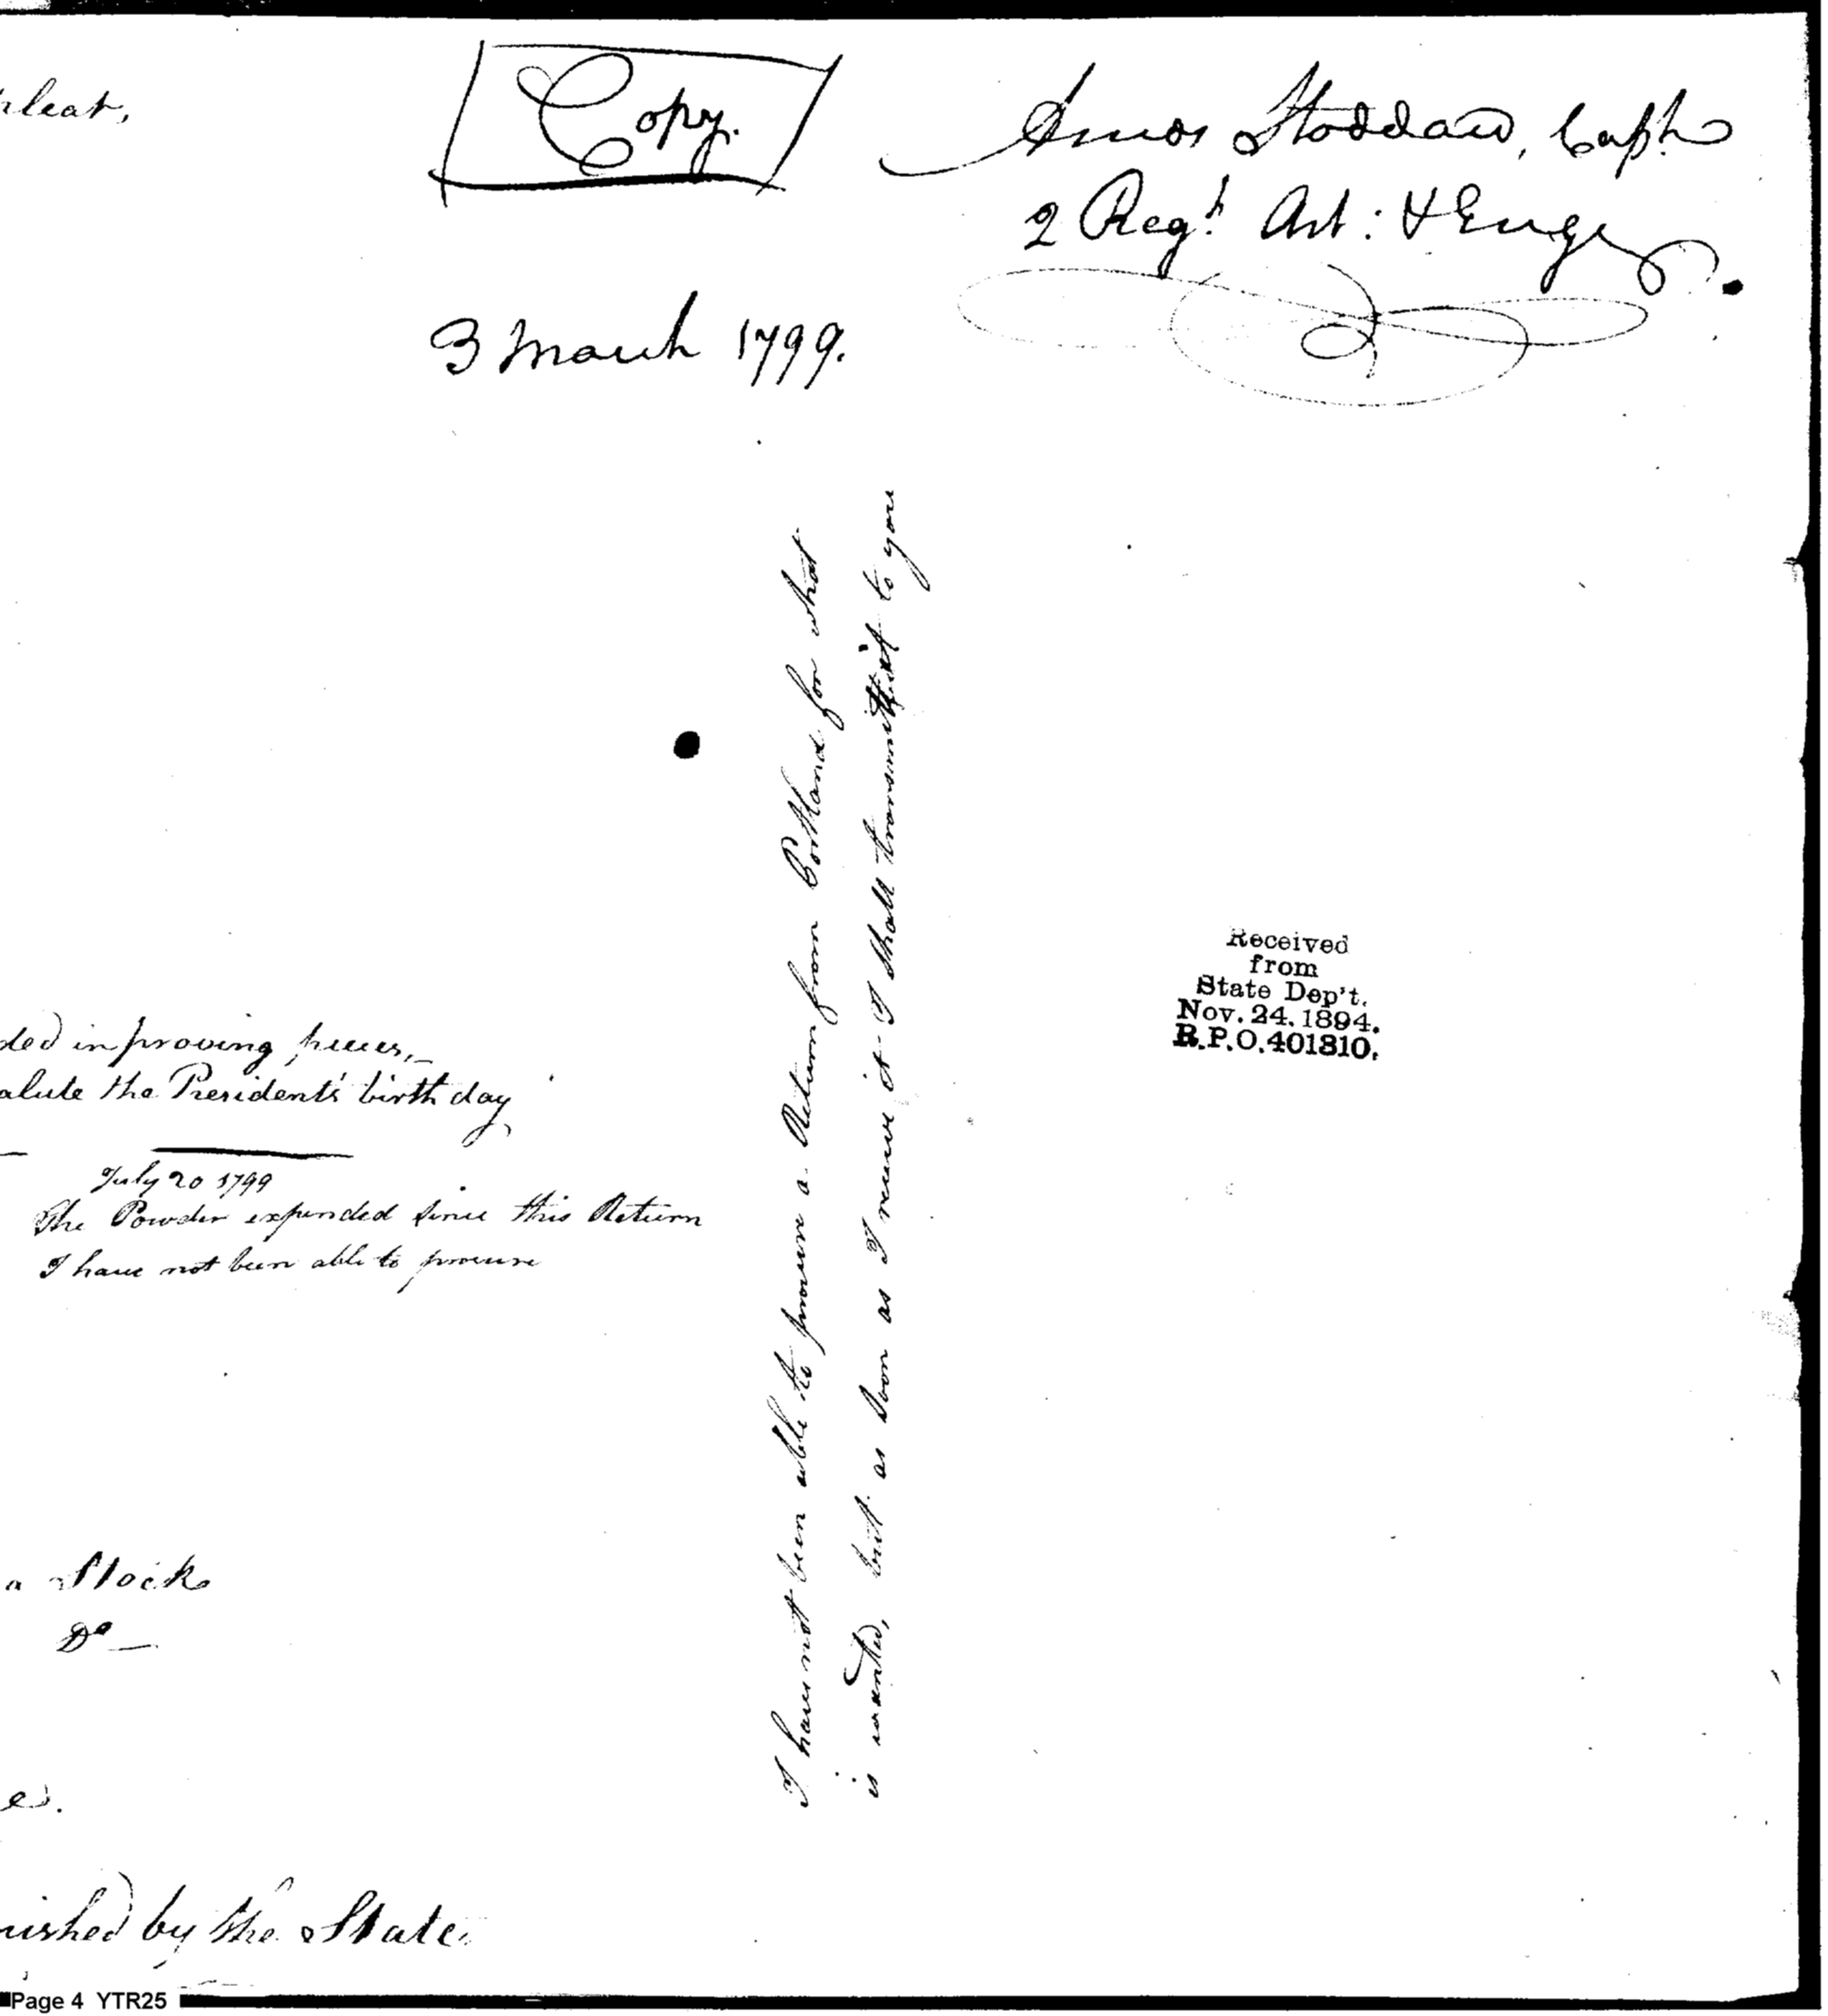 pleat,
Copy.
Amos Stoddard, Capt.
2 Regt. Art: & Engrs.
3 March 1799.
ded in proving pieces,—
alute the President's birth day
July 20 1799
The Powder expended since this Return
I have not been able to procure
a Stock
Do —
e.
nished by the State.
I have not been able to procure a Return from Portland for what
is wanted, but as soon as I receive it I shall transmit it to you
Received
from
State Dep't.
Nov. 24. 1894.
R.P.O. 401810.
Page 4 YTR25